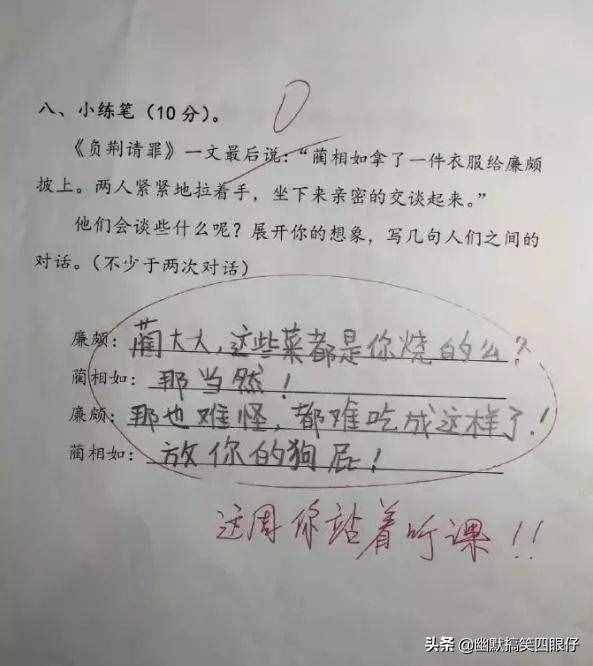 八、小练笔（10分）。
0
《负荆请罪》一文最后说：“蔺相如拿了一件衣服给廉颇
披上。两人紧紧地拉着手，坐下来亲密的交谈起来。”
他们会谈些什么呢？展开你的想象，写几句人们之间的
对话。（不少于两次对话）
廉颇：蔺大人，这些菜都是你烧的么？
蔺相如：那当然！
廉颇：那也难怪，都难吃成这样了！
蔺相如：放你的狗屁！
这周你站着听课！！
头条 @幽默搞笑四眼仔